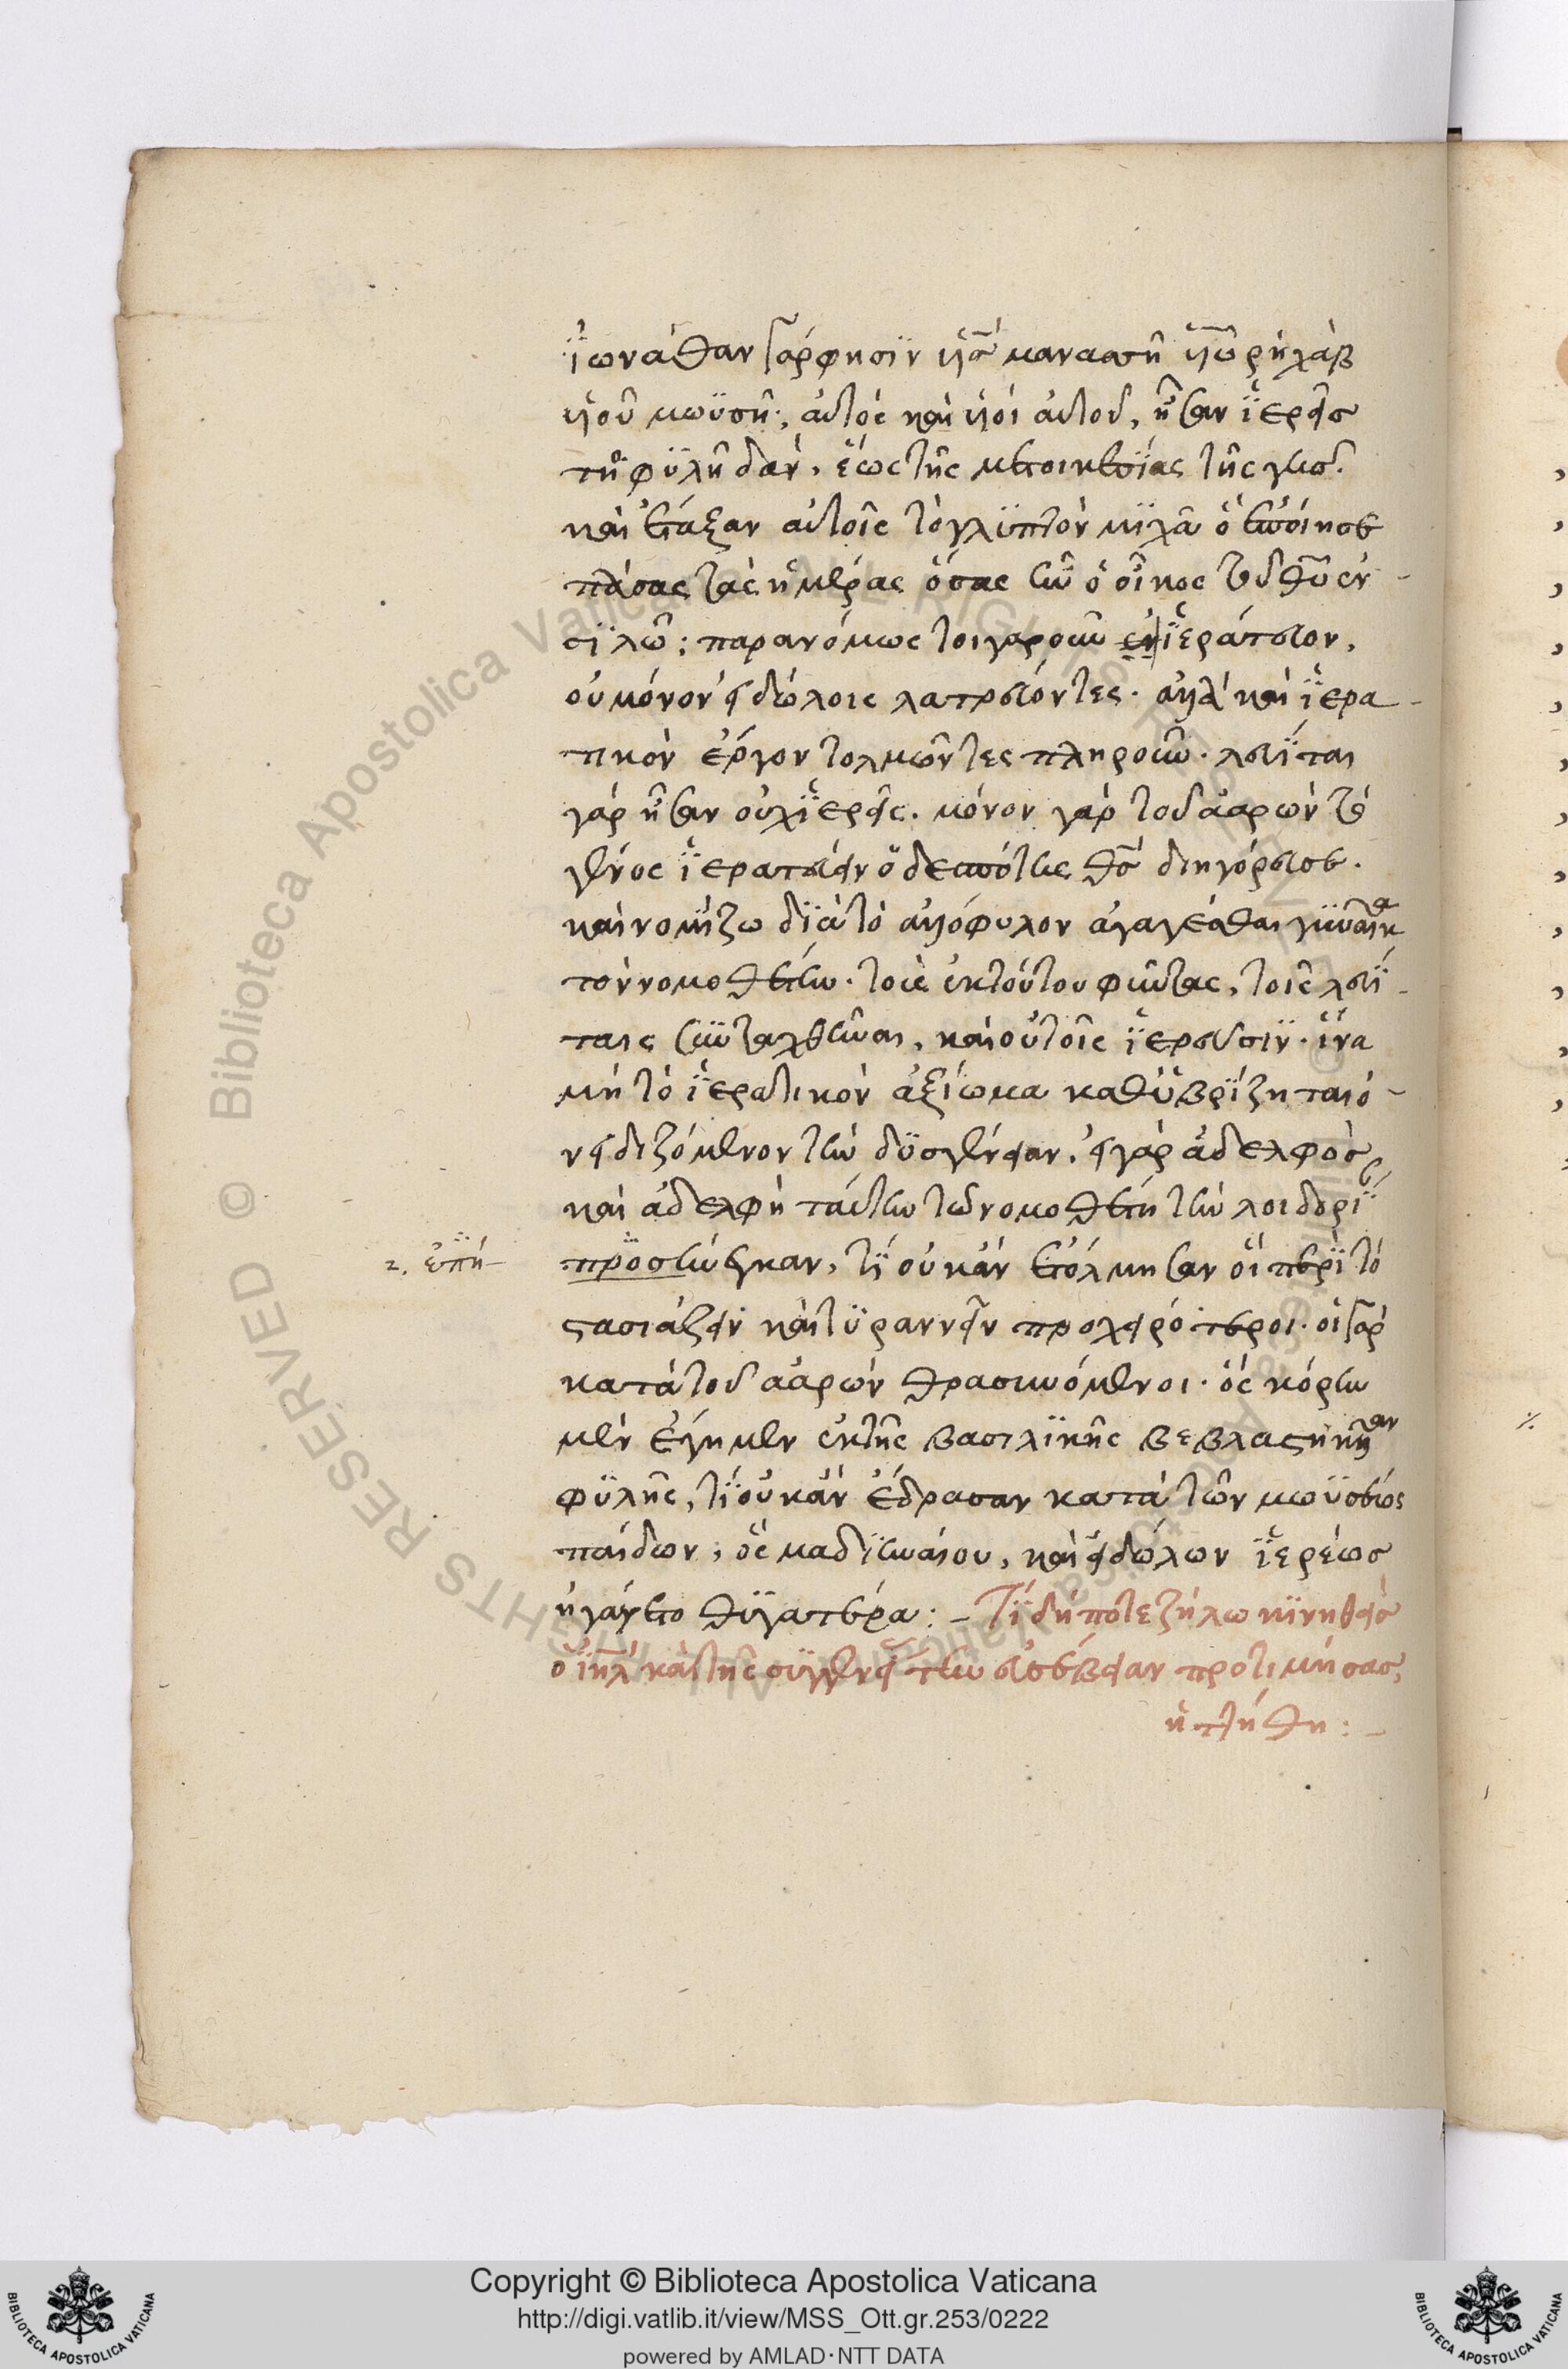 ἰωνάθαν γὰρ φησὶν υἱὸς μανασσῆ υἱοῦ ῥηχὰβ
υἱοῦ μωϋσῆ· αὐτὸς καὶ υἱοὶ αὐτοῦ, ἦσαν ἱερεῖς
τῇ φυλῇ δὰν, ἕως τῆς μετοικεσίας τῆς γῆς.
καὶ ἔταξαν αὐτοῖς τὸ γλυπτὸν μιχᾶ ὃ ἐποίησε
πάσας τὰς ἡμέρας ὅσας ἦν ὁ οἶκος τοῦ θυ ἐν
σιλώ· παρανόμως τοιγαροῦν ἐν ἱεράτευον,
οὐ μόνον εἰδώλοις λατρεύοντες· ἀλλὰ καὶ ἱερα-
τικὸν ἔργον τολμῶντες πληροῦν. λευῖται
γὰρ ἦσαν οὐχ ἱερεῖς. μόνον γὰρ τοῦ ἀαρὼν τὸ
γένος ἱερατεύειν ὁ δεσπότης θς διηγόρευσε.
καὶ νομίζω διὰ τὸ ἀλλόφυλον ἀγαγέσθαι γυναῖκα
τὸν νομοθέτην. τοὺς ἐκ τούτου φύντας, τοῖς λευί-
ταις συνταχθῆναι, καὶ οὐ τοῖς ἱερεῦσιν. ἵνα
μὴ τὸ ἱερατικὸν ἀξίωμα καθυβρίζηται ὀ-
νειδιζόμενον τὴν δυσγένειαν. εἰ γὰρ ἀδελφὸς
καὶ ἀδελφὴ ταύτην τῶ νομοθέτη τὴν λοιδορί
προσήνεγκαν, τί οὐκ ἂν ἐτόλμησαν οἱ περὶ τὸ
2. ἐπή-
στασιάζειν καὶ τυραννεῖν προχειρότεροι. οἱ γὰρ
κατὰ τοῦ ἀαρὼν θρασυνόμενοι. ὃς κόρην
μὲν ἔγημεν ἐκ τῆς βασιλικῆς βεβλαστηκυῖαν
φυλῆς, τί οὐκ ἂν ἔδρασαν κατὰ τῶν μωϋσέως
παίδων, ὃς μαδιηναίου, καὶ εἰδώλων ἱερέως
ἠγάγετο θυγατέρα:- Τί δήποτε ζήλω κινηθεὶς
ὁ ιηλ κατὰ τῆς συγγενεί τὴν εὐσέβειαν προτιμήσας,
ἡττήθη:-
Copyright © Biblioteca Apostolica Vaticana
http://digi.vatlib.it/view/MSS_Ott.gr.253/0222
powered by AMLAD·NTT DATA